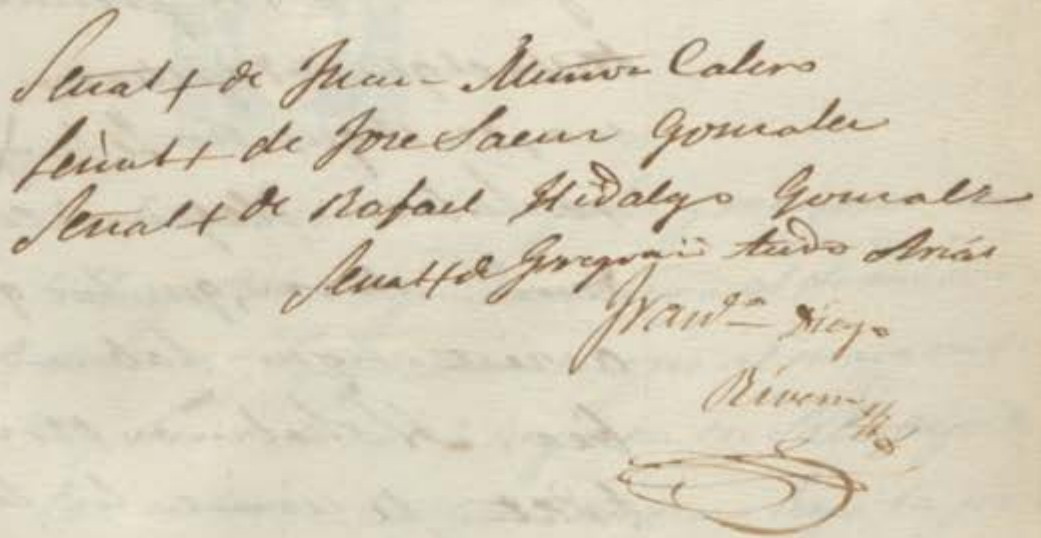 Señal + de Juan Muñoz Calero
Señal + de Jose Saenz Gonzalez
Señal + de Rafael Hidalgo Gonzalz
Señal + de Gregorio Arias
Diego
Rivera